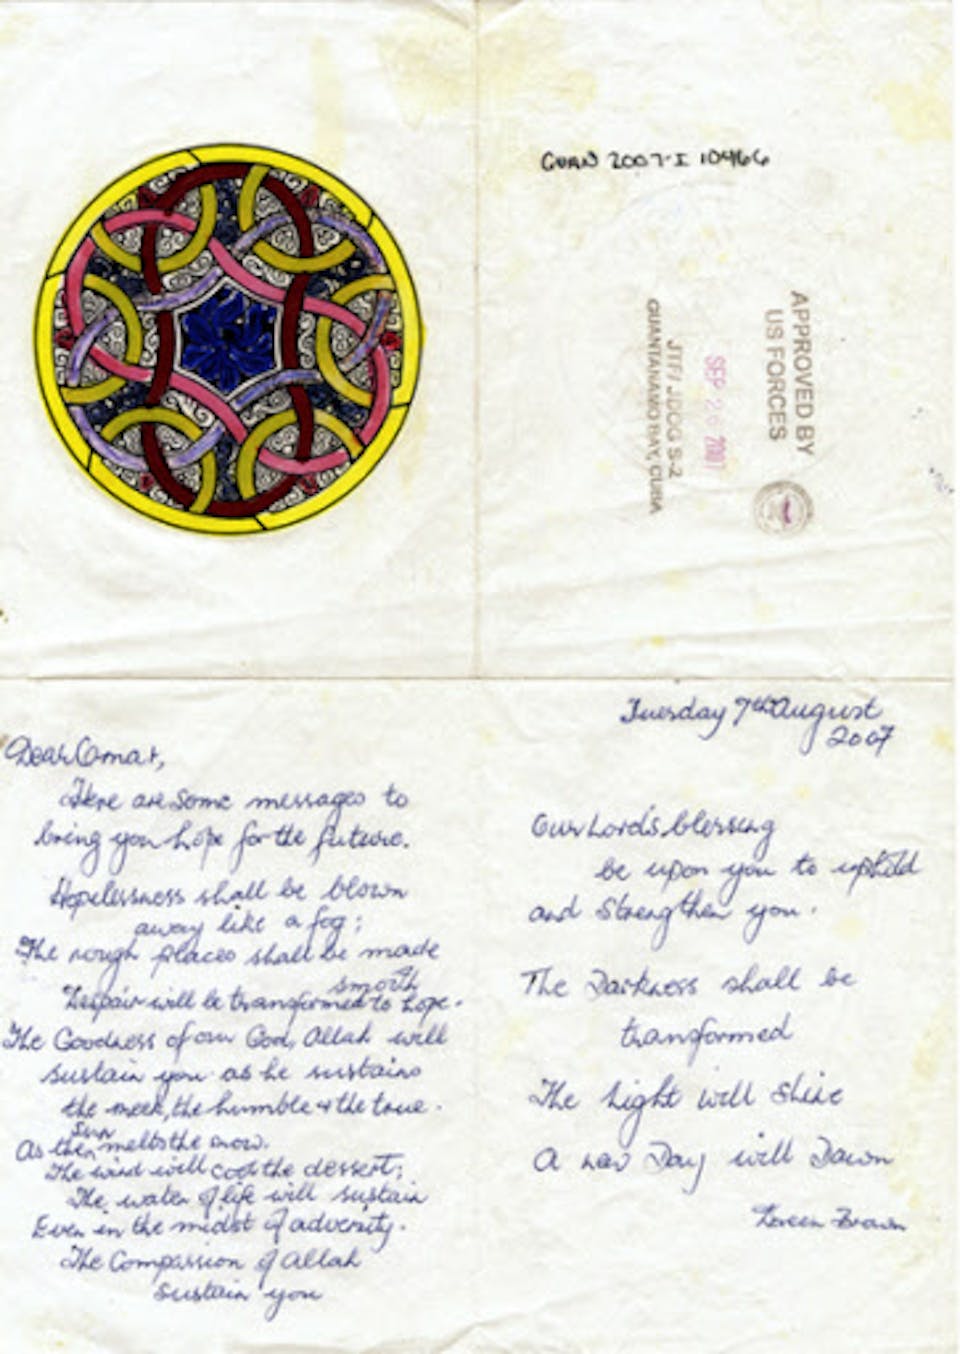 GUAN 2007-I 10466
APPROVED BY
US FORCES
SEP 26 2007
JTF/JDOG S-2
GUANTANAMO BAY, CUBA
Dear Omar,
Here are some messages to
bring you hope for the future.
Hopelessness shall be blown
away like a fog;
The rough places shall be made
smooth
Despair will be transformed to hope.
The Goodness of our God, Allah will
sustain you as he sustains
the meek, the humble & the true.
As the sun melts the snow.
The wind will cool the dessert;
The water of life will sustain
Even in the midst of adversity.
The Compassion of Allah
sustain you
Tuesday 7th August
2007
Our Lord's blessing
be upon you to uphold
and strengthen you.
The Darkness shall be
transformed
The Light will shine
A new Day will Dawn
Brown